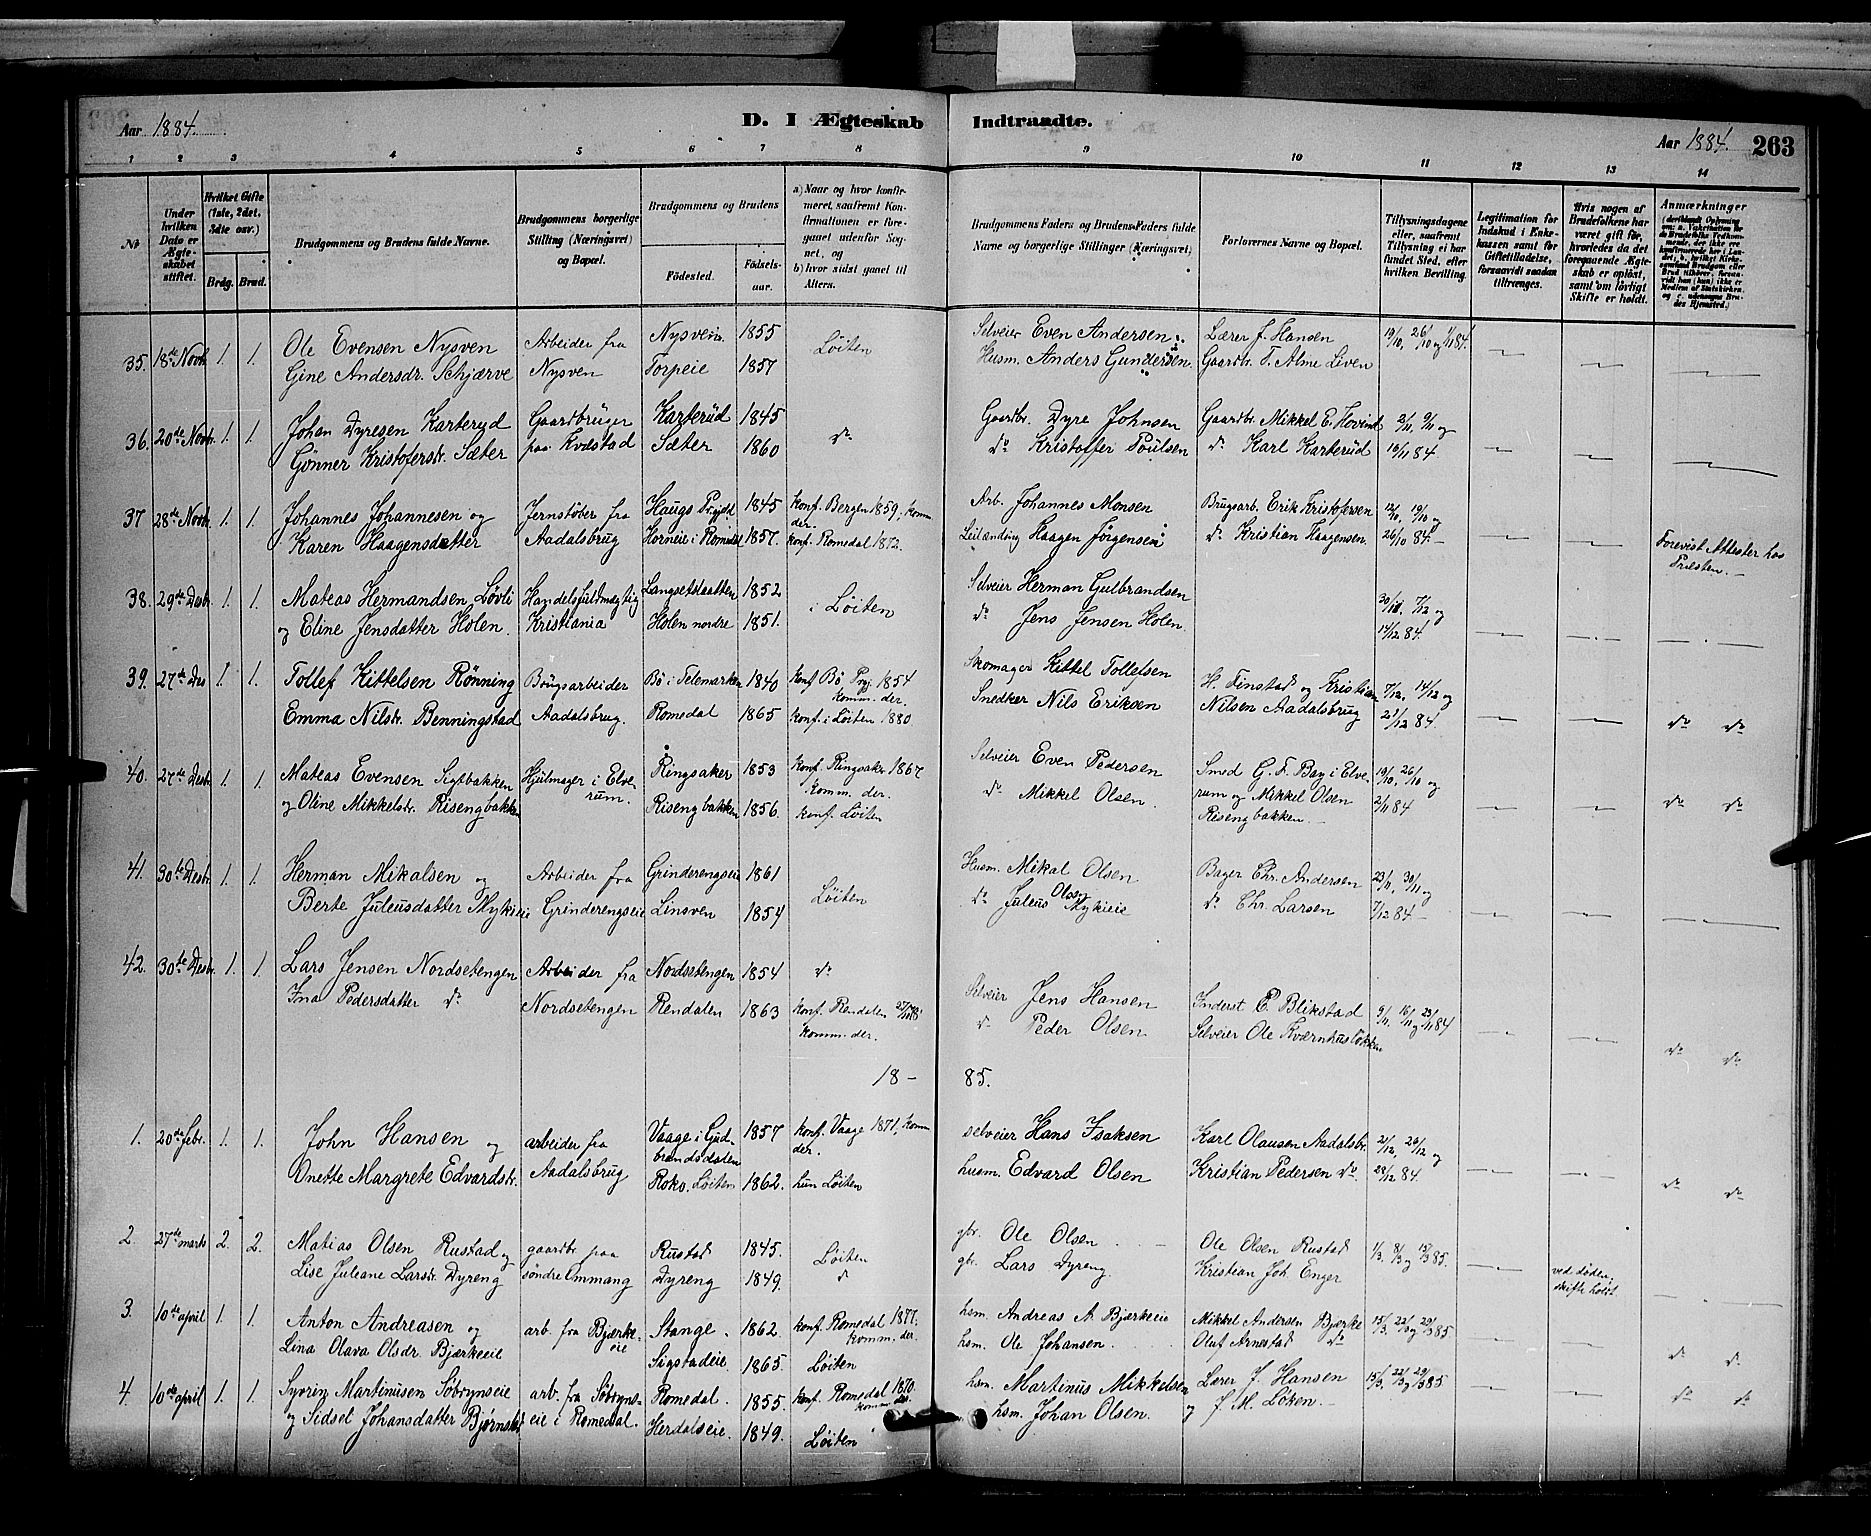 Aar 1884. D. I Ægteskab Indtraadte. Aar 1884. 263
1 2 3 4 5 6 7 8 9 10 11 12 13 14
No
Under hvilken Dato er Ægteskabet stiftet.
Hvilket Gifte (1ste, 2det, 3dte osv.)
Brdg. Brud.
Brudgommens og Brudens fulde Navne.
Brudgommens borgerlige Stilling (Næringsvei) og Bopæl.
Brudgommens og Brudens
Födested. Födselsaar.
a) Naar og hvor konfirmeret, saafremt Konfirmationen er foregaaet udenfor Sognet, og
b) hvor sidst gaaet til Alters.
Brudgommens Faders og Brudens Faders fulde Navne og borgerlige Stillinger (Næringsvei).
Forlovernes Navne og Bopæl.
Tillysningsdagene eller, saafremt Tillysning ei har fundet Sted, efter hvilken Bevilling.
Legitimation for Indskud i Enkekassen samt for Giftetilladelse, forsaavidt saadan tiltrænges.
Hvis nogen af Brudefolkene har været gift för, hvorledes da det foregaaende Ægteskab er oplöst, samt om lövligt Skifte er holdt.
Anmærkninger
35. 18de Novb. 1. 1. Ole Evensen Nysven Arbeider fra Nysvein 1855 Löiten Selveier Even Andersen Lærer J. Hansen 19/10, 26/10 og 1/11 84.
Gine Andersdr. Schjærve Nysven Torpeie 1857 Husm. Anders Gundersen. Gaardbr. T. Alme Liven
36. 20de Novb. 1. 1. Johan Dyresen Karterud Gaardbruger Karterud 1845 do Gaardbr. Dyre Johnsen Gaardbr. Mikkel E. Hovind 2/11, 9/11 og
Gönner Kristoferstr. Sæter paa Kvæstad Sæter 1860 do Kristoffer Poulsen do Karl Karterud 16/11 84.
37 28de Novb. 1. 1. Johannes Johannesen og Jernstöber fra Haugs Prgjld 1845 konf. Bergen 1859, komm. der. Arb. Johannes Monsen Brugsarb. Erik Kristofersen 12/10, 19/10 og
Karen Haagensdatter Aadalsbrug Horneie i Romedal 1857. konf. Romedal 1872. Leilænding Haagen Jörgensen do Kristian Haagensen. 26/10 84. Forevist Attester hos Præsten.
38. 29de Desb. 1. 1. Mateas Hermandsen Lövli Handelsfuldmægtig Langsetslaatten 1852 i Löiten Selveier Herman Gulbrandsen 30/11, 7/12 og
og Eline Jensdatter Holen. Kristiania Holen nordre 1851. do Jens Jensen Holen. 14/12 84.
39. 27de Des 1. 1. Tollef Kittelsen Rönning Brugsarbeider Bö i Telemarken 1840 konf Bö Prgj. 1854 komm. der. Skomager Kittel Tollefsen H. Finstad og Kristian 7/12, 14/12 og
Emma Nilstr. Benningstad Aadalsbrug. Romedal 1865 konf. i Löiten 1880 Snedker Nils Eriksen Nilsen Aadalsbrug 21/12 84. do do
40. 27de Desb. 1. 1. Mateas Evensen Sigtbakken Hjulmager i Elverum. Ringsaker 1853 konf. Ringsakr. 1867 komm. der. Selveier Even Pedersen Smed G. F. Bay i Elverum og Mikkel Olsen 19/10, 26/10 og
og Oline Mikkelstr. Risengbakken Risengbakken 1856. konf. Löiten do Mikkel Olsen. Risengbakken. 2/11 84 do do
41. 30te Desb. 1. 1. Herman Mikalsen og Arbeider fra Grinderengseie 1861 Löiten Husm. Mikal Olsen Bager Chr. Andersen 23/11, 30/11 og
Berte Juleusdatter Mykieie Grinderengseie Linsven 1854 do Juleus Olsen Mykieie do Chr. Larsen 7/12 84.
42. 30te Desb. 1. 1. Lars Jensen Nordsetengen Arbeider fra Nordsetengen 1854 do Selveier Jens Hansen Inderst E. Blikstad 9/11, 16/11 og 23/11 84
Ina Pedersdatter do Nordsetengen Rendalen 1863 konf. Rendalen komm. der. do Peder Olsen Selveier Ole Kværnhusløkken do do
18 - 85.
1. 20de febr. 1. 1. John Hansen og arbeider fra Vaage i Gudbrandsdalen 1857 konf. Vaage 1871, komm der. selveier Hans Isaksen Karl Olausen Aadalsbr. 21/12, 26/12 og
Onette Margrete Edvardstr. Aadalsbrug Roko, Löiten 1862. hun Löiten husm. Edvard Olsen Kristian Pedersen do 28/12 84. do do
2. 27de marts 2. 2. Matias Olsen Rustad og gaardbr. paa Rustad 1845. Löiten gbr. Ole Olsen Ole Olsen Rustad 1/3, 8/3 og 15/3 85.
Lise Juleane Larstr. Dyreng söndre Ommang Dyreng 1849. do gbr. Lars Dyreng Kristian Joh. Enger ved döden, skifte holdt
3. 10de april 1. 1. Anton Andreasen og arb. fra Bjærkeeie Stange. 1862. konf. Romedal 1877. komm. der. hsm. Andreas A. Bjærkeeie Mikkel Andersen Bjærke 15/3, 22/3 og 29/3 85
Lina Olava Olsdr. Bjærkeeie Sigstadeie. 1865. Löiten hsm. Ole Johansen. Oluf Arnestad do do do
4. 10de april 1. 1. Syvrin Martinusen Söbrynseie arb. fra Söbrynseie i Romedal. Romedal. 1855. konf. Romedal 1870. komm. der. hsm. Martinus Mikkelsen Lærer J. Hansen 15/3, 22/3 og 29/3 85
og Sidsel Johansdatter Bjørnstad Herdalseie. 1849. Löiten hsm. Johan Olsen. og J. M. Löken. do do